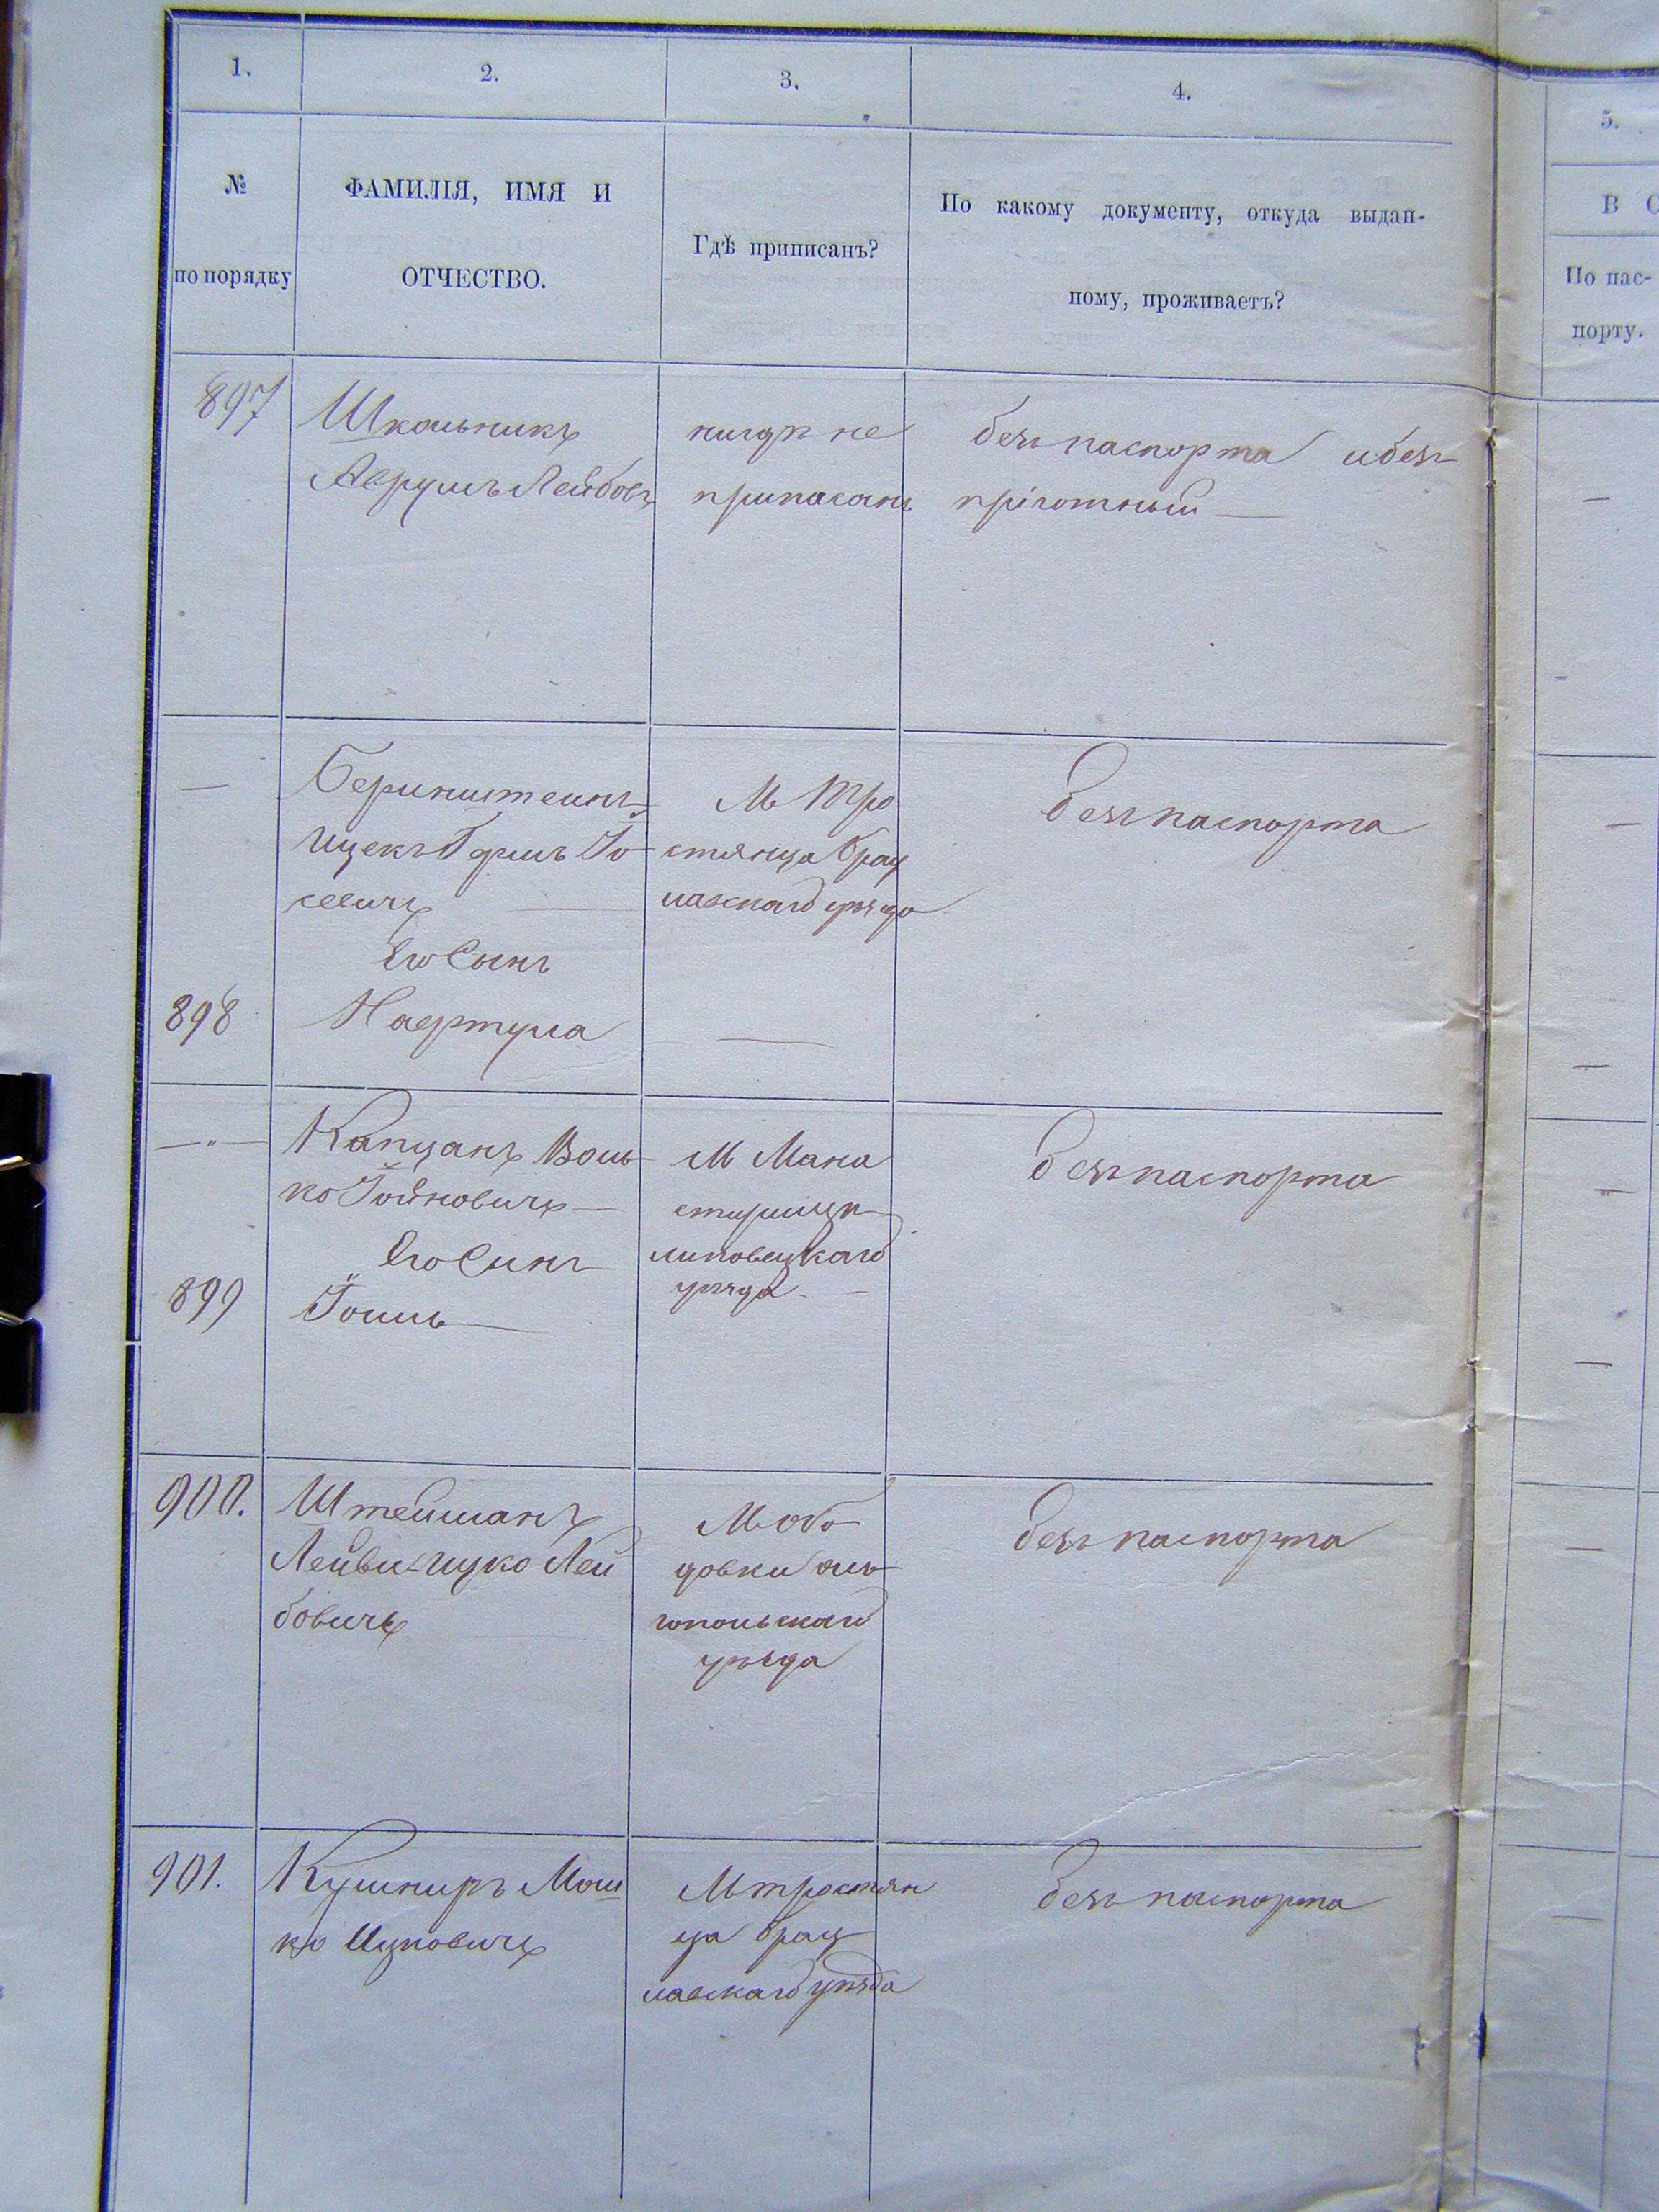 1.
2.
3.
4.
5.
№
по порядку
ФАМИЛІЯ, ИМЯ И
ОТЧЕСТВО.
Гдѣ приписанъ?
По какому документу, откуда выдан-
ному, проживаетъ?
В С
По пас-
порту.
897
Школьникъ
Аврумъ Лейбовъ
нигдѣ не
приписанъ
безъ паспорта и безъ
пріютный —
—
Беринштеинъ
Ицекъ Гершъ Іо
севичъ
Его Сынъ
898
Нафтула
М Тро
стянца Брац
лавскаго уѣзда
—
безъ паспорта
— „ —
Капцанъ Воль
ко Іойновичъ —
Его Синъ
899
Іоиль —
М Мона
стырища
липовецкаго
уѣзда —
безъ паспорта
900.
Штейманъ
Лейви-Ицко Лей
бовичъ
М обо
довки оль
гопольскаго
уѣзда
безъ паспорта
901.
Кушниръ Мош
ко Ицковичъ
М тростян
ца брац
лавскаго уѣзда
безъ паспорта